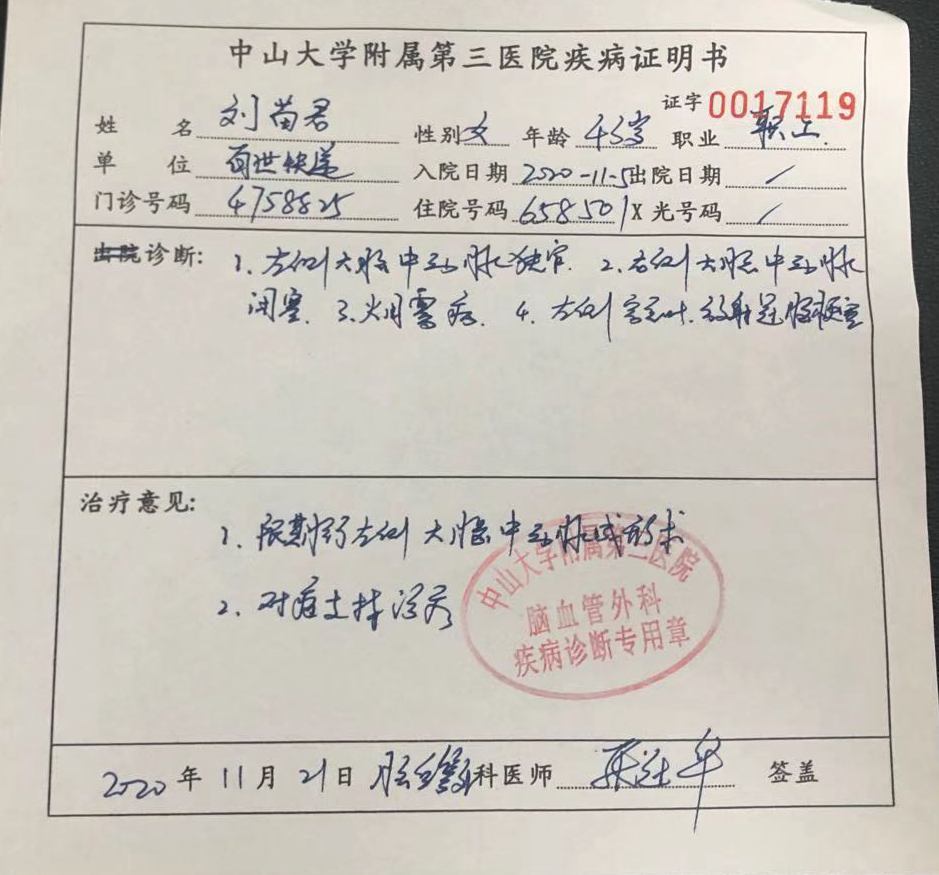 中山大学附属第三医院疾病证明书
证字 0017119
姓 名 刘苗君 性别 女 年龄 45岁 职业 职工.
单 位 百世快递 入院日期 2020-11-5 出院日期 /
门诊号码 4758825 住院号码 658501 X光号码 /
出院诊断: 1. 左侧大脑中动脉狭窄. 2. 右侧大脑中动脉
闭塞. 3. 烟雾病. 4. 左侧 叶.放射冠脑梗塞
治疗意见:
1. 左侧大脑中动脉成形术
2. 对症支持治疗
中山大学附属第三医院
脑血管外科
疾病诊断专用章
2020 年 11 月 21 日 科医师 签盖